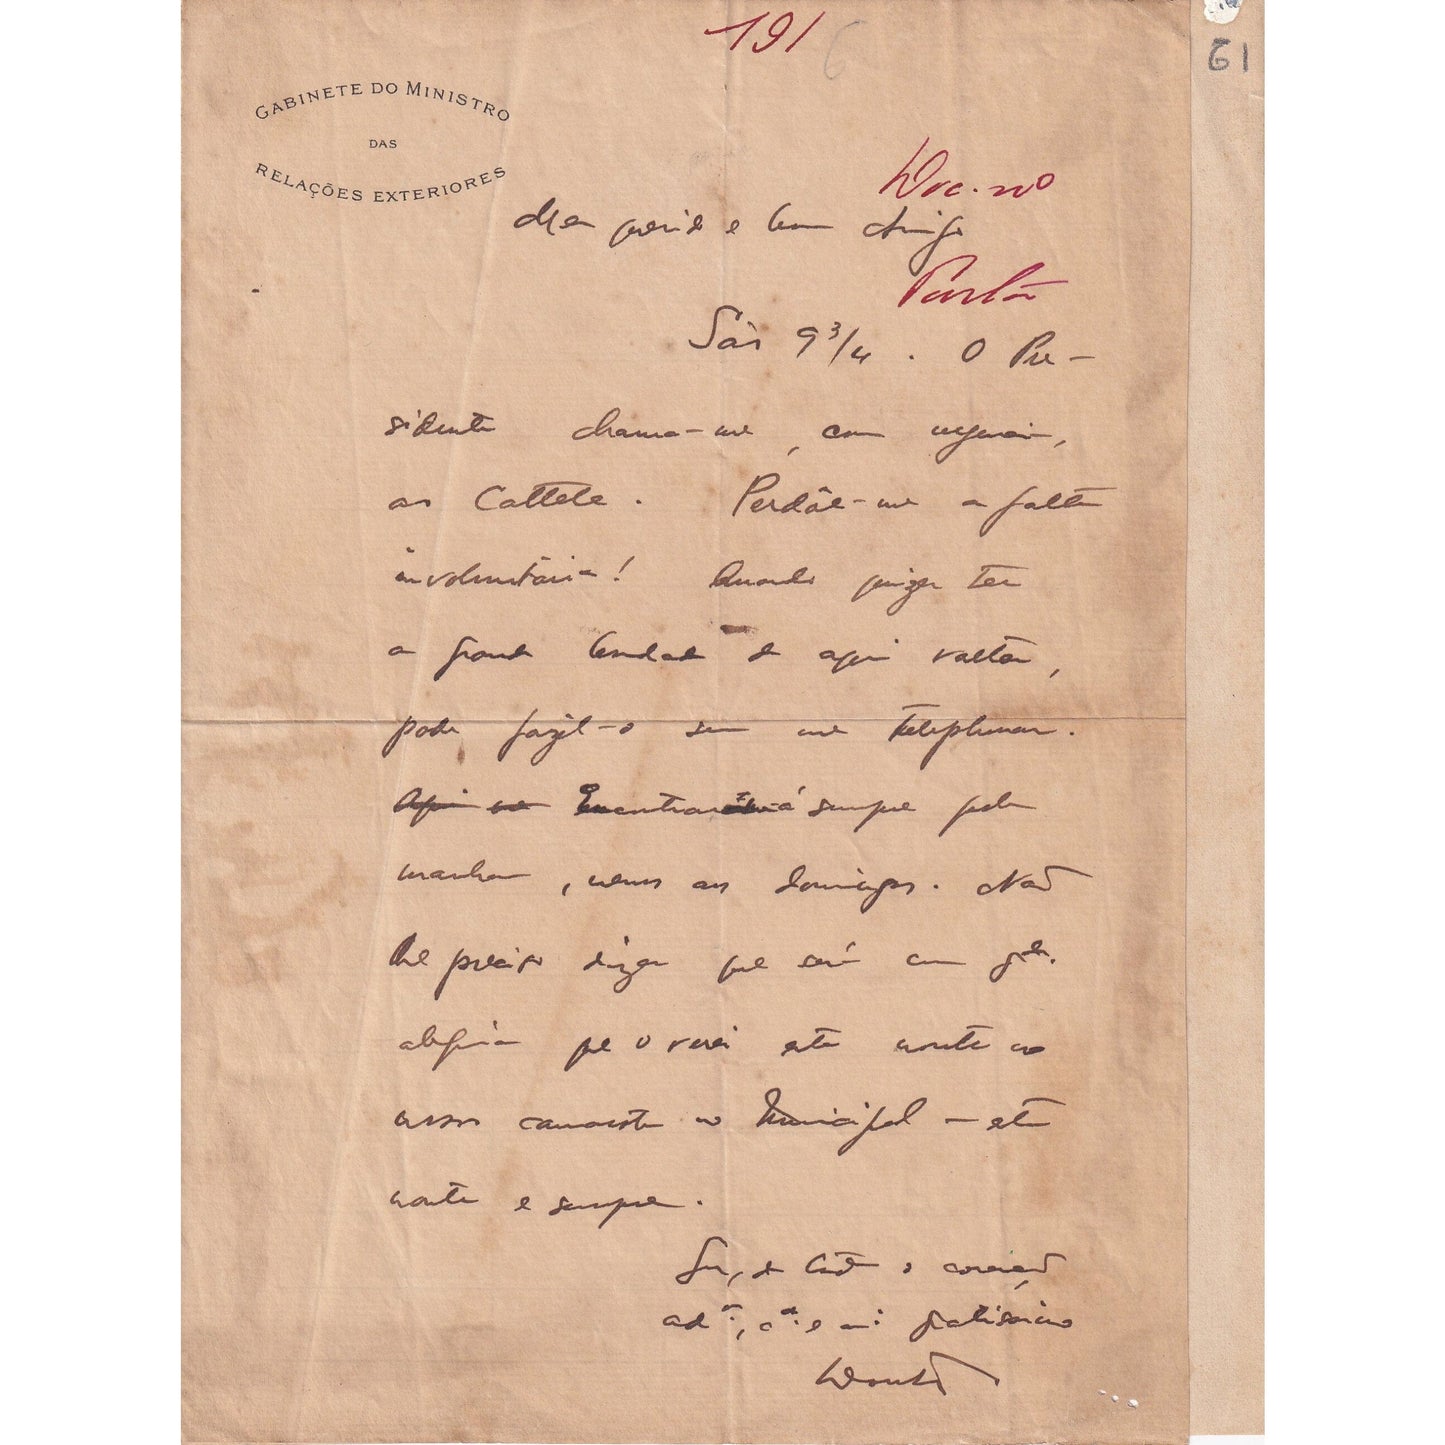 191
6
61
GABINETE DO MINISTRO
DAS
RELAÇÕES EXTERIORES
Doc. nº
Meu querido e bom Amigo
Pasta
São 9 3/4. O Pre-
sidente chama-me, com urgencia,
ao Cattete. Perdôe-me a falta
involuntária! Quando quizer ter
a grande bondade de aqui voltar,
pode fazêl-o sem me telephonar.
Aqui me Encontrará sempre pela
manhan, menos aos domingos. Não
lhe preciso dizer que será com gde.
alegria que o verei esta noute no
nosso camarote no Municipal – esta
noute e sempre.
Sou, de todo o coração
adm.or, am.º e gratissimo